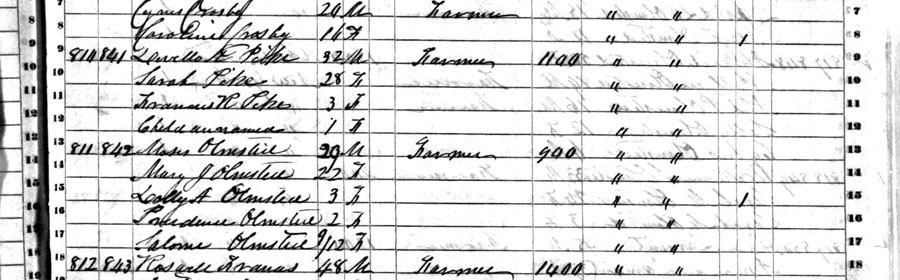 7 Cyrus Crosby 20 M Farmer " " 7
8 Caroline Crosby 16 F " " 1 8
9 810 841 Pike 32 M Farmer 1100 " " 9
10 Sarah Pike 28 F " " 10
11 Francis H Pike 3 F " " 11
12 Child unnamed 1 F " " 12
13 811 842 Moses Olmsted 29 M Farmer 900 " " 13
14 Mary J Olmsted 27 F " " 14
15 Dolly A Olmsted 3 F " " 1 15
16 Prudence Olmsted 2 F " " 16
17 Salome Olmsted 9/12 F " " 17
18 812 843 Roswell Francis 48 M Farmer 1400 " " 18